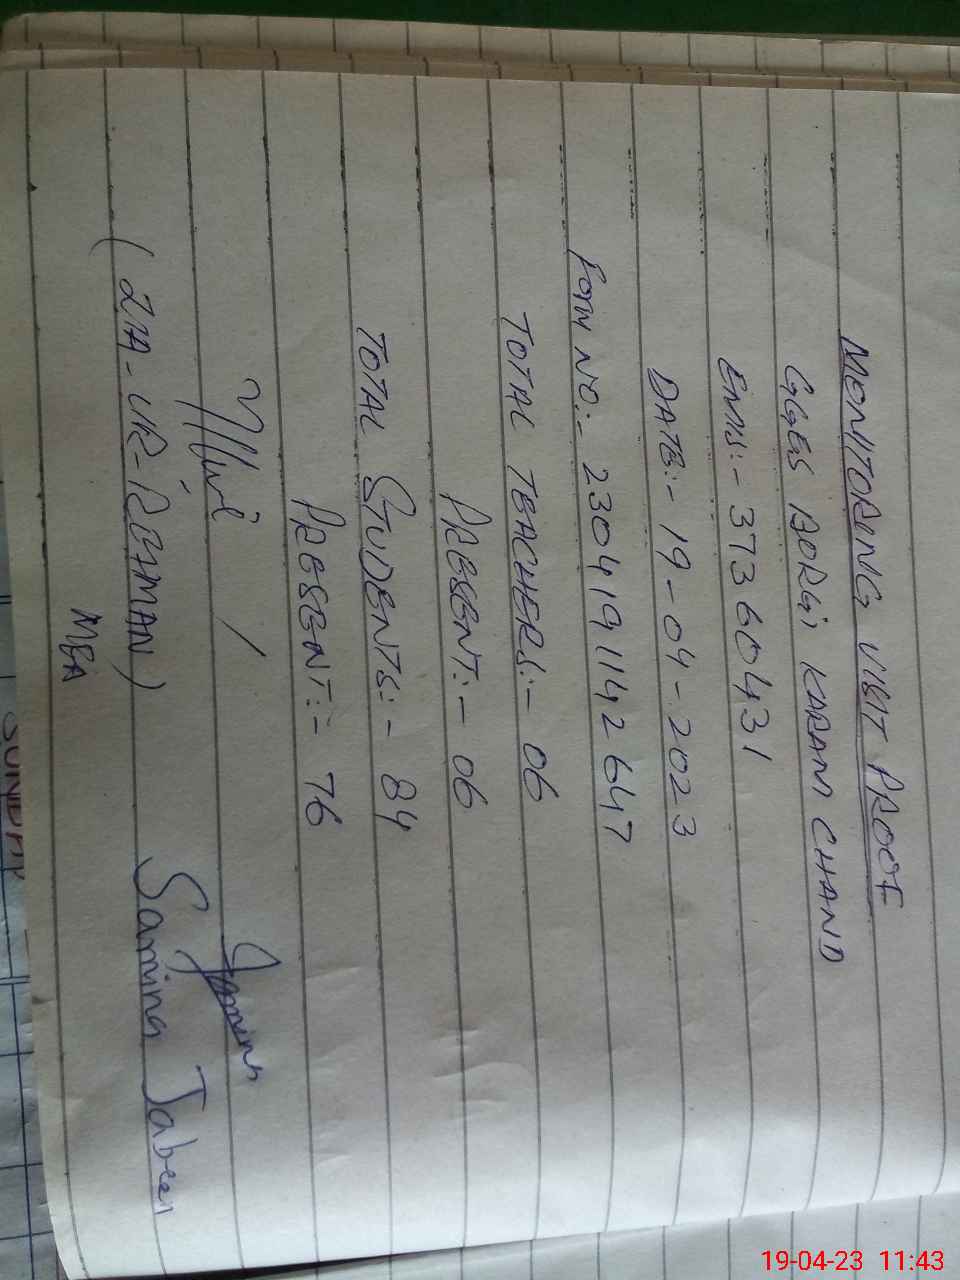 MONITORING VISIT PROOF
GGES BORGI KARAM CHAND
EMIS:- 37360431
DATE:- 19-04-2023
FORM NO:- 2304191142647
TOTAL TEACHERS:- 06
PRESENT:- 06
TOTAL STUDENTS:- 84
PRESENT:- 76
(ZIA-UR-REHMAN)
MEA
Samina
Samina Jabeen
SUNDAY
19-04-23 11:43